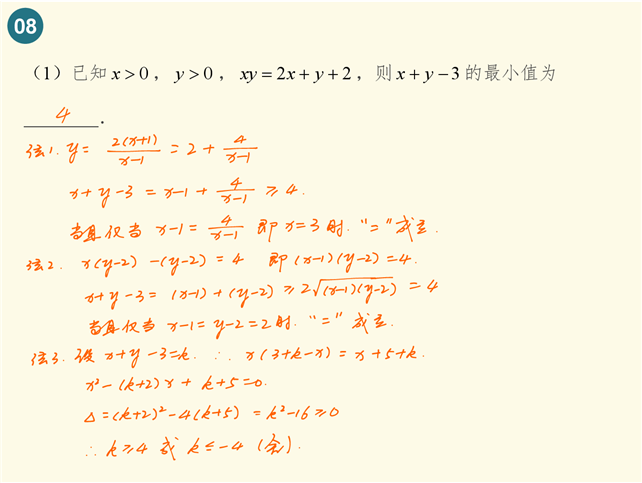 08
（1）已知 x > 0， y > 0， xy = 2x + y + 2， 则 x + y - 3 的最小值为
4 .
法1. y = 2(x+1)/(x-1) = 2 + 4/(x-1)
x+y-3 = x-1 + 4/(x-1) ≥ 4.
当且仅当 x-1 = 4/(x-1) 即 x=3 时. "=" 成立.
法2. x(y-2) -(y-2) = 4 即 (x-1)(y-2)=4.
x+y-3 = (x-1)+(y-2) ≥ 2√((x-1)(y-2)) = 4
当且仅当 x-1= y-2=2时. "=" 成立.
法3. 设 x+y-3=k. ∴ x(3+k-x) = x+5+k.
x²-(k+2)x + k+5=0.
Δ=(k+2)²-4(k+5) = k²-16≥0
∴ k≥4 或 k≤-4 (舍).